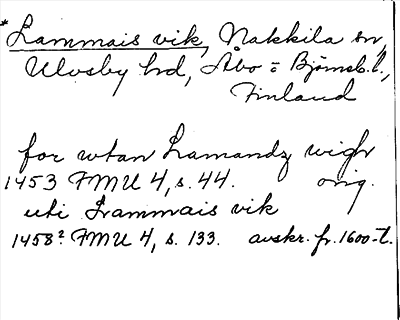 *Lammais vik, Nakkila sn,
Ulvsby hd, Åbo = Björneb. l.,
Finland
for wtan Lamandz wigh
1453 FMU 4, s. 44. orig.
uti Lammais vik
1458² FMU 4, s. 133. avskr. fr. 1600-t.